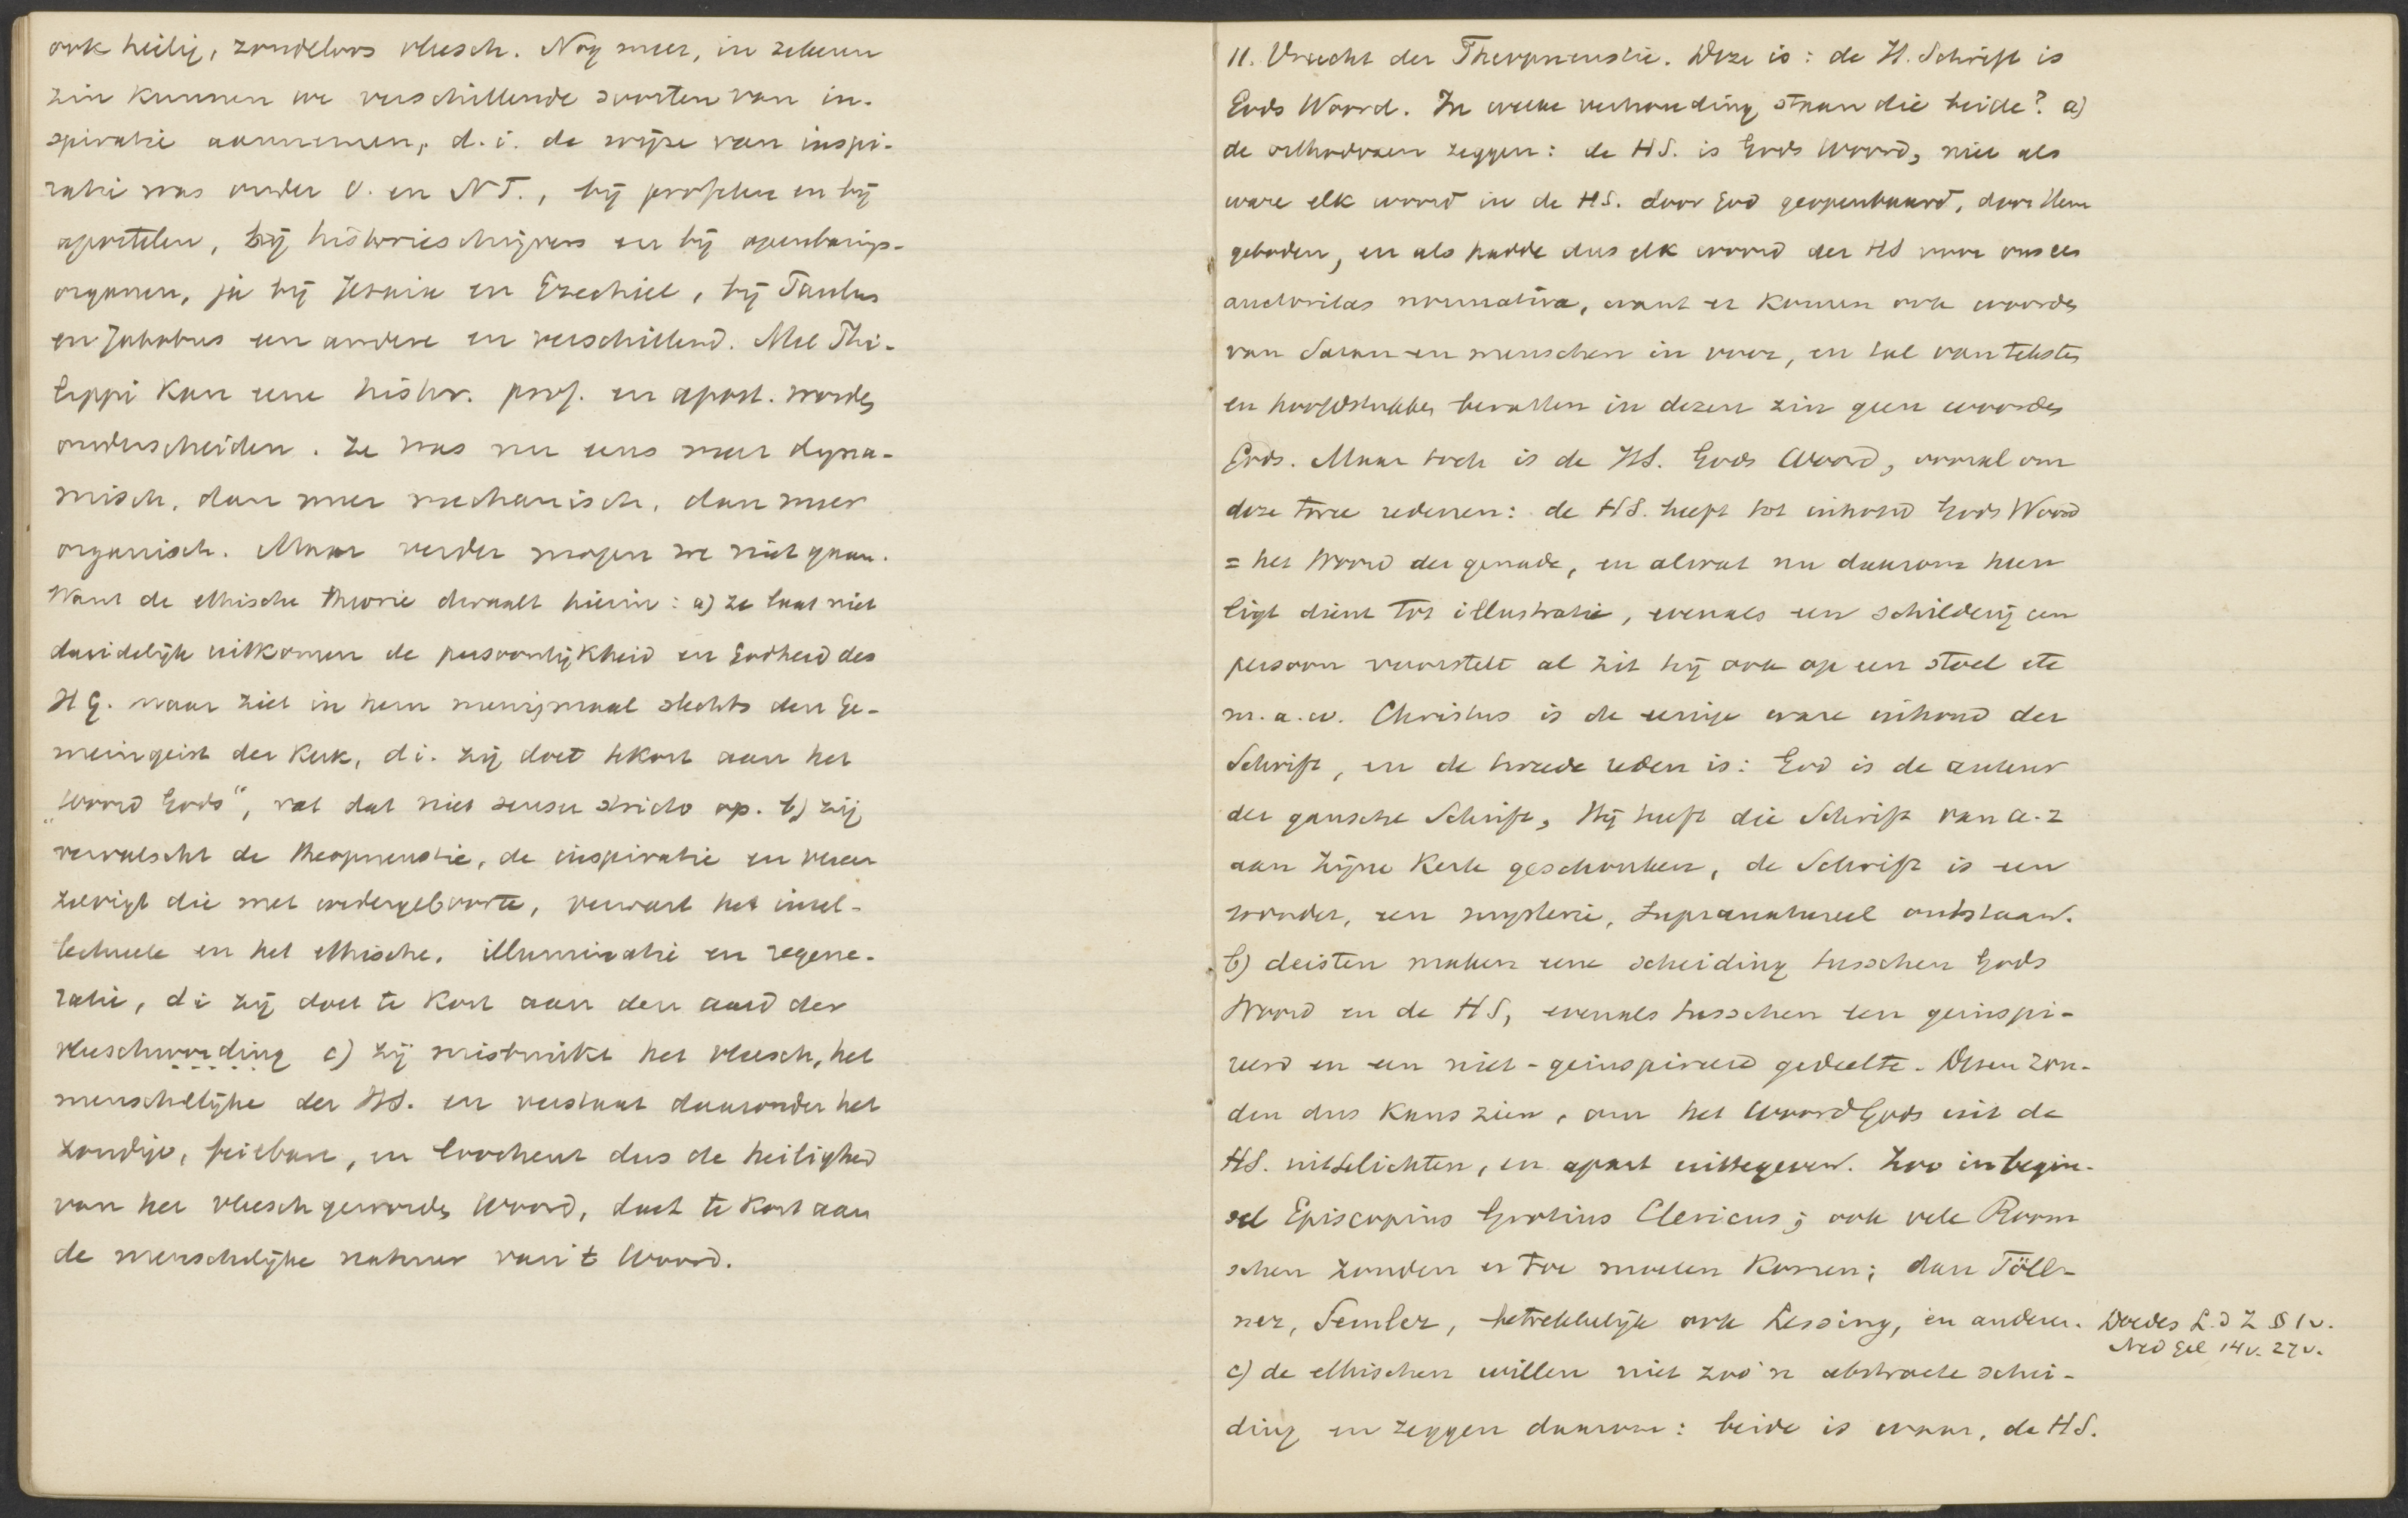 ook heilig, zondeloos vleesch. Nog meer, in zekeren
zin kunnen we verschillende soorten van in-
spiratie aannemen, d.i. de wijze van inspi-
ratie was onder O. en NT., bij profeten en bij
apostelen, bij historieschrijvers en bij openbarings-
organen, ja bij Jesaia en Ezechiel, bij Paulus
en Jakobus een andere en verschillend. Met Phi-
lippi kan eene histor. prof. en apost. worden
onderscheiden. Ze was nu eens meer dyna-
misch, dan meer mechanisch, dan meer
organisch. Maar verder mogen we niet gaan.
Want de ethische theorie dwaalt hierin: a) ze laat niet
duidelijk uitkomen de persoonlijkheid en Godheid des
HG. maar ziet in hem menigmaal slechts den Ge-
meingeist der Kerk, di. zij doet tekort aan het
„Woord Gods“, vat dat niet sensu stricto op. b) zij
vervalscht de theopneustie, de inspiratie en vereen
zelvigt die met wedergeboorte, verwart het intel-
lectueele en het ethische. illuminatie en regene-
ratie, di zij doet te kort aan den aard der
vleeschwording c) zij misbruikt het vleesch, het
menschelijke der HS. en verstaat daaronder het
zondige, feilbare, en loochent dus de heiligheid
van het vleesch geworden Woord, doet te kort aan
de menschelijke natuur van 't Woord.
11. Vrucht der Theopneustie. Deze is: de H. Schrift is
Gods Woord. In welke verhouding staan die beide? a)
de orthodoxen zeggen: de HS. is Gods Woord, niet als
ware elk woord in de HS. door God geopenbaard, door Hem
geboden, en als hadde dus elk woord der HS voor ons een
auctoritas normativa, want er komen ook woorden
van Satan en menschen in voor, en tal van teksten
en hoofdstukken bevatten in dezen zin geen woorden
Gods. Maar toch is de HS. Gods Woord, vooral om
deze twee redenen: de HS. heeft tot inhoud Gods Woord
= het Woord der genade, en alwat nu daarom heen
ligt dient tot illustratie, evenals een schilderij een
persoon voorstelt al zit hij ook op een stoel etc
m.a.w. Christus is de eenige ware inhoud der
Schrift, en de tweede reden is: God is de auteur
der gansche Schrift, Hij heeft die Schrift van a-z
aan Zijne Kerk geschonken, de Schrift is een
wonder, een mysterie, supranatureel ontstaan.
b) deisten maken eene scheiding tusschen Gods
Woord en de HS, evenals tusschen een geinspi-
reerd en een niet-geinspireerd gedeelte. Dezen zou-
den dus kans zien, om het Woord Gods uit de
HS. uittelichten, en apart uittegeven. Zoo in begin-
sel Episcopius Grotius Clericus; ook vele Room
schen zouden er toe moeten komen; dan Töll-
ner, Semler, betrekkelijk ook Lessing, en anderen. Doedes L. d Z § 1v.
Ned Gel 14v. 27v.
c) de ethischen willen niet zoo'n abstracte schei-
ding en zeggen daarom: beide is waar, de HS.